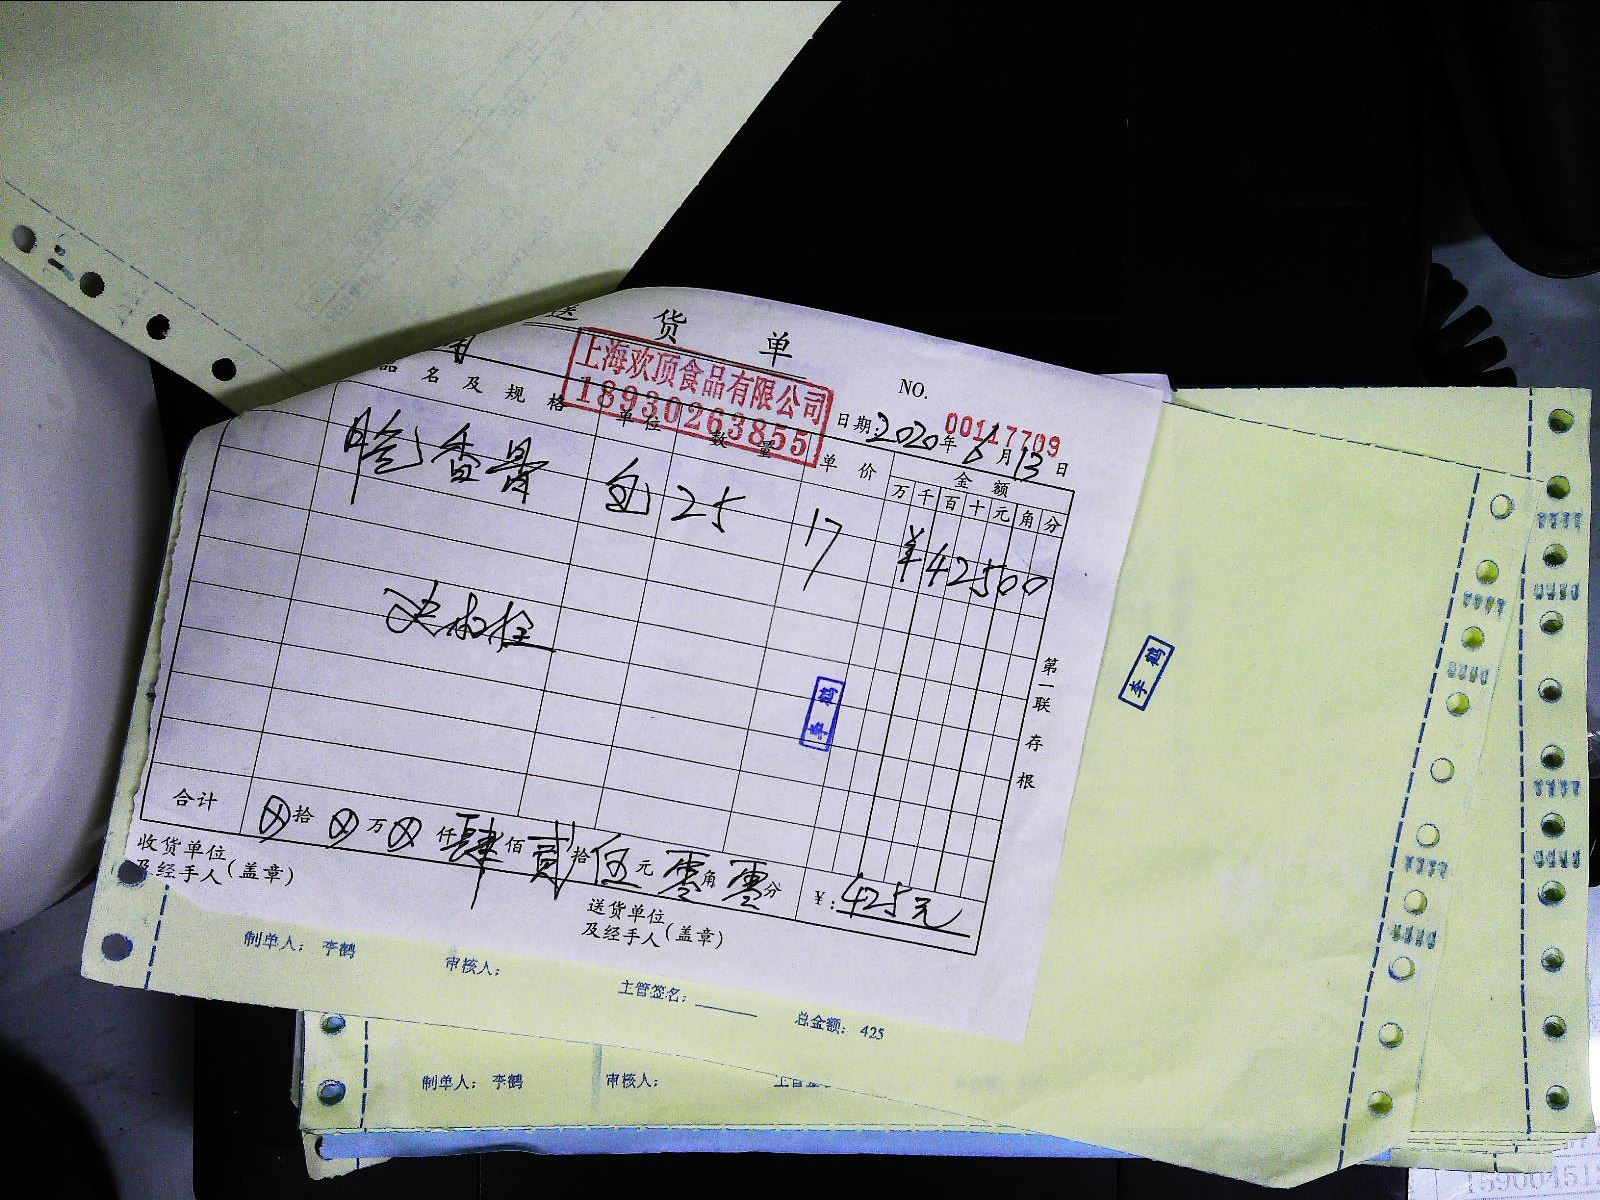 送 货 单
上海欢顶食品有限公司
18930263855
NO.
00117709
日期:2020年6月13日
品 名 及 规 格 单位 数 量 单 价 金 额
万 千 百 十 元 角 分
脆香骨 包 25 17 ¥42500
李鹤
李鹤
第一联存根
合计 ⊗拾⊗万⊗仟肆佰贰拾伍元零角零分 ¥:425元
收货单位
及经手人(盖章)
送货单位
及经手人(盖章)
制单人: 李鹤 审核人: 主管签名: 总金额: 425
制单人: 李鹤 审核人: